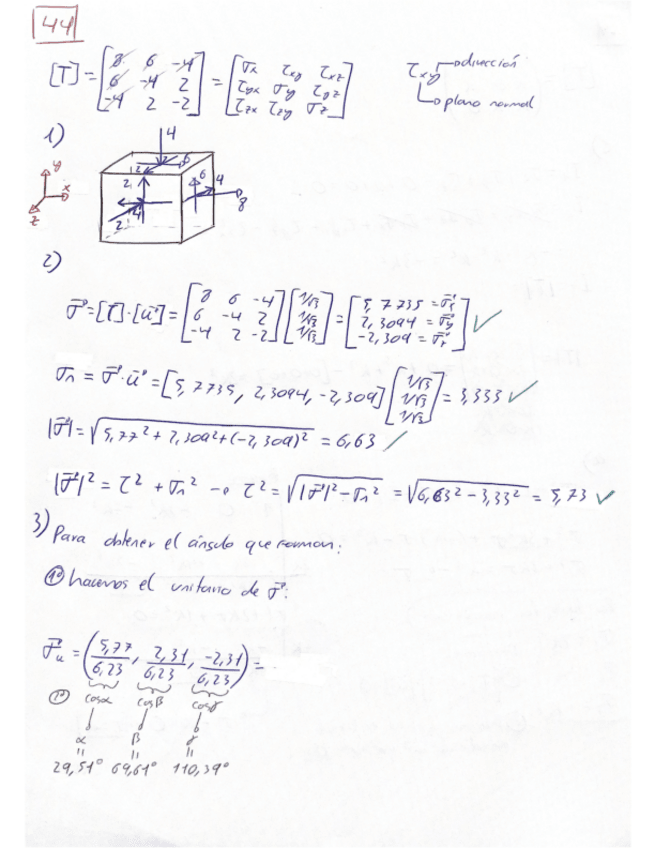 44
[T] = [8 6 -4; 6 -4 2; -4 2 -2] = [σx τxy τxz; τyx σy τyz; τzx τzy σz] τxy → dirección
→ plano normal
1)
4
y x z
2 6 2 6 4 8 2 4 2
2)
σ⃗ = [T]·[u⃗] = [8 6 -4; 6 -4 2; -4 2 -2] [1/√3; 1/√3; 1/√3] = [5,7735 = σx; 2,3094 = σy; -2,309 = σz] ✓
σn = σ⃗·u⃗ = [5,7735, 2,3094, -2,309] [1/√3; 1/√3; 1/√3] = 3,333 ✓
|σ⃗| = √5,77² + 2,309² + (-2,309)² = 6,63 ✓
|σ⃗|² = τ² + σn² → τ² = √|σ⃗|² - σn² = √6,63² - 3,33² = 5,73 ✓
3) Para obtener el ángulo que forman:
1º hacemos el unitario de σ⃗:
σ⃗u = (5,77/6,23, 2,31/6,23, -2,31/6,23) =
cosα cosβ cosγ
α β γ
29,51° 69,61° 110,39°